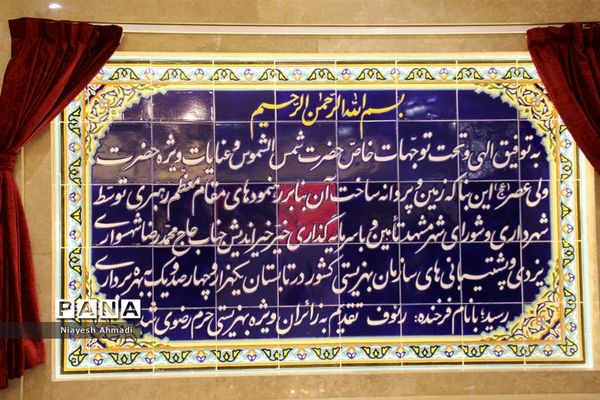 بسم الله الرحمن الرحیم
به توفیق الهی و تحت توجهات خاص حضرت شمس الشموس و عنایات ویژه حضرت
ولی عصر (عج) این بنا که زمین و پروانه ساخت آن بنا بر رهنمودهای مقام معظم رهبری توسط
شهرداری و شورای شهر مشهد تأمین و با سرمایه گذاری خیر خیراندیش جناب حاج محمدرضا شهسواری
یزدی و پشتیبانی های سازمان بهزیستی کشور در تابستان یکهزار و چهارصد و یک به بهره برداری
رسید؛ با نام فرخنده: رئوف تقدیم به زائران ویژه بهزیستی حرم رضوی شد
PANA
Niayesh Ahmadi
PANA
Niayesh Ahmadi